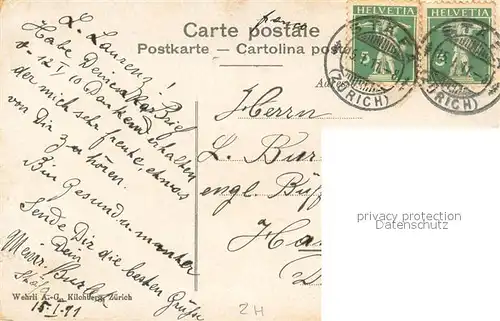 Carte postale
Postkarte - Cartolina posta
HELVETIA
HELVETIA
5
5
(ZÜRICH)
(ZÜRICH)
L. Laurenz!
Habe Deinen Brief
12 I/10 Dankend erhalten
der mich sehr freute, etwas
von Dir zu hören.
Bin Gesund u. munter
Sende Dir die besten Grüsse
Dein
15.I.11
Wehrli A.-G., Kilchberg, Zürich
Herrn
L. Bur
engl. Büf
Ha
privacy protection
Datenschutz
ZH